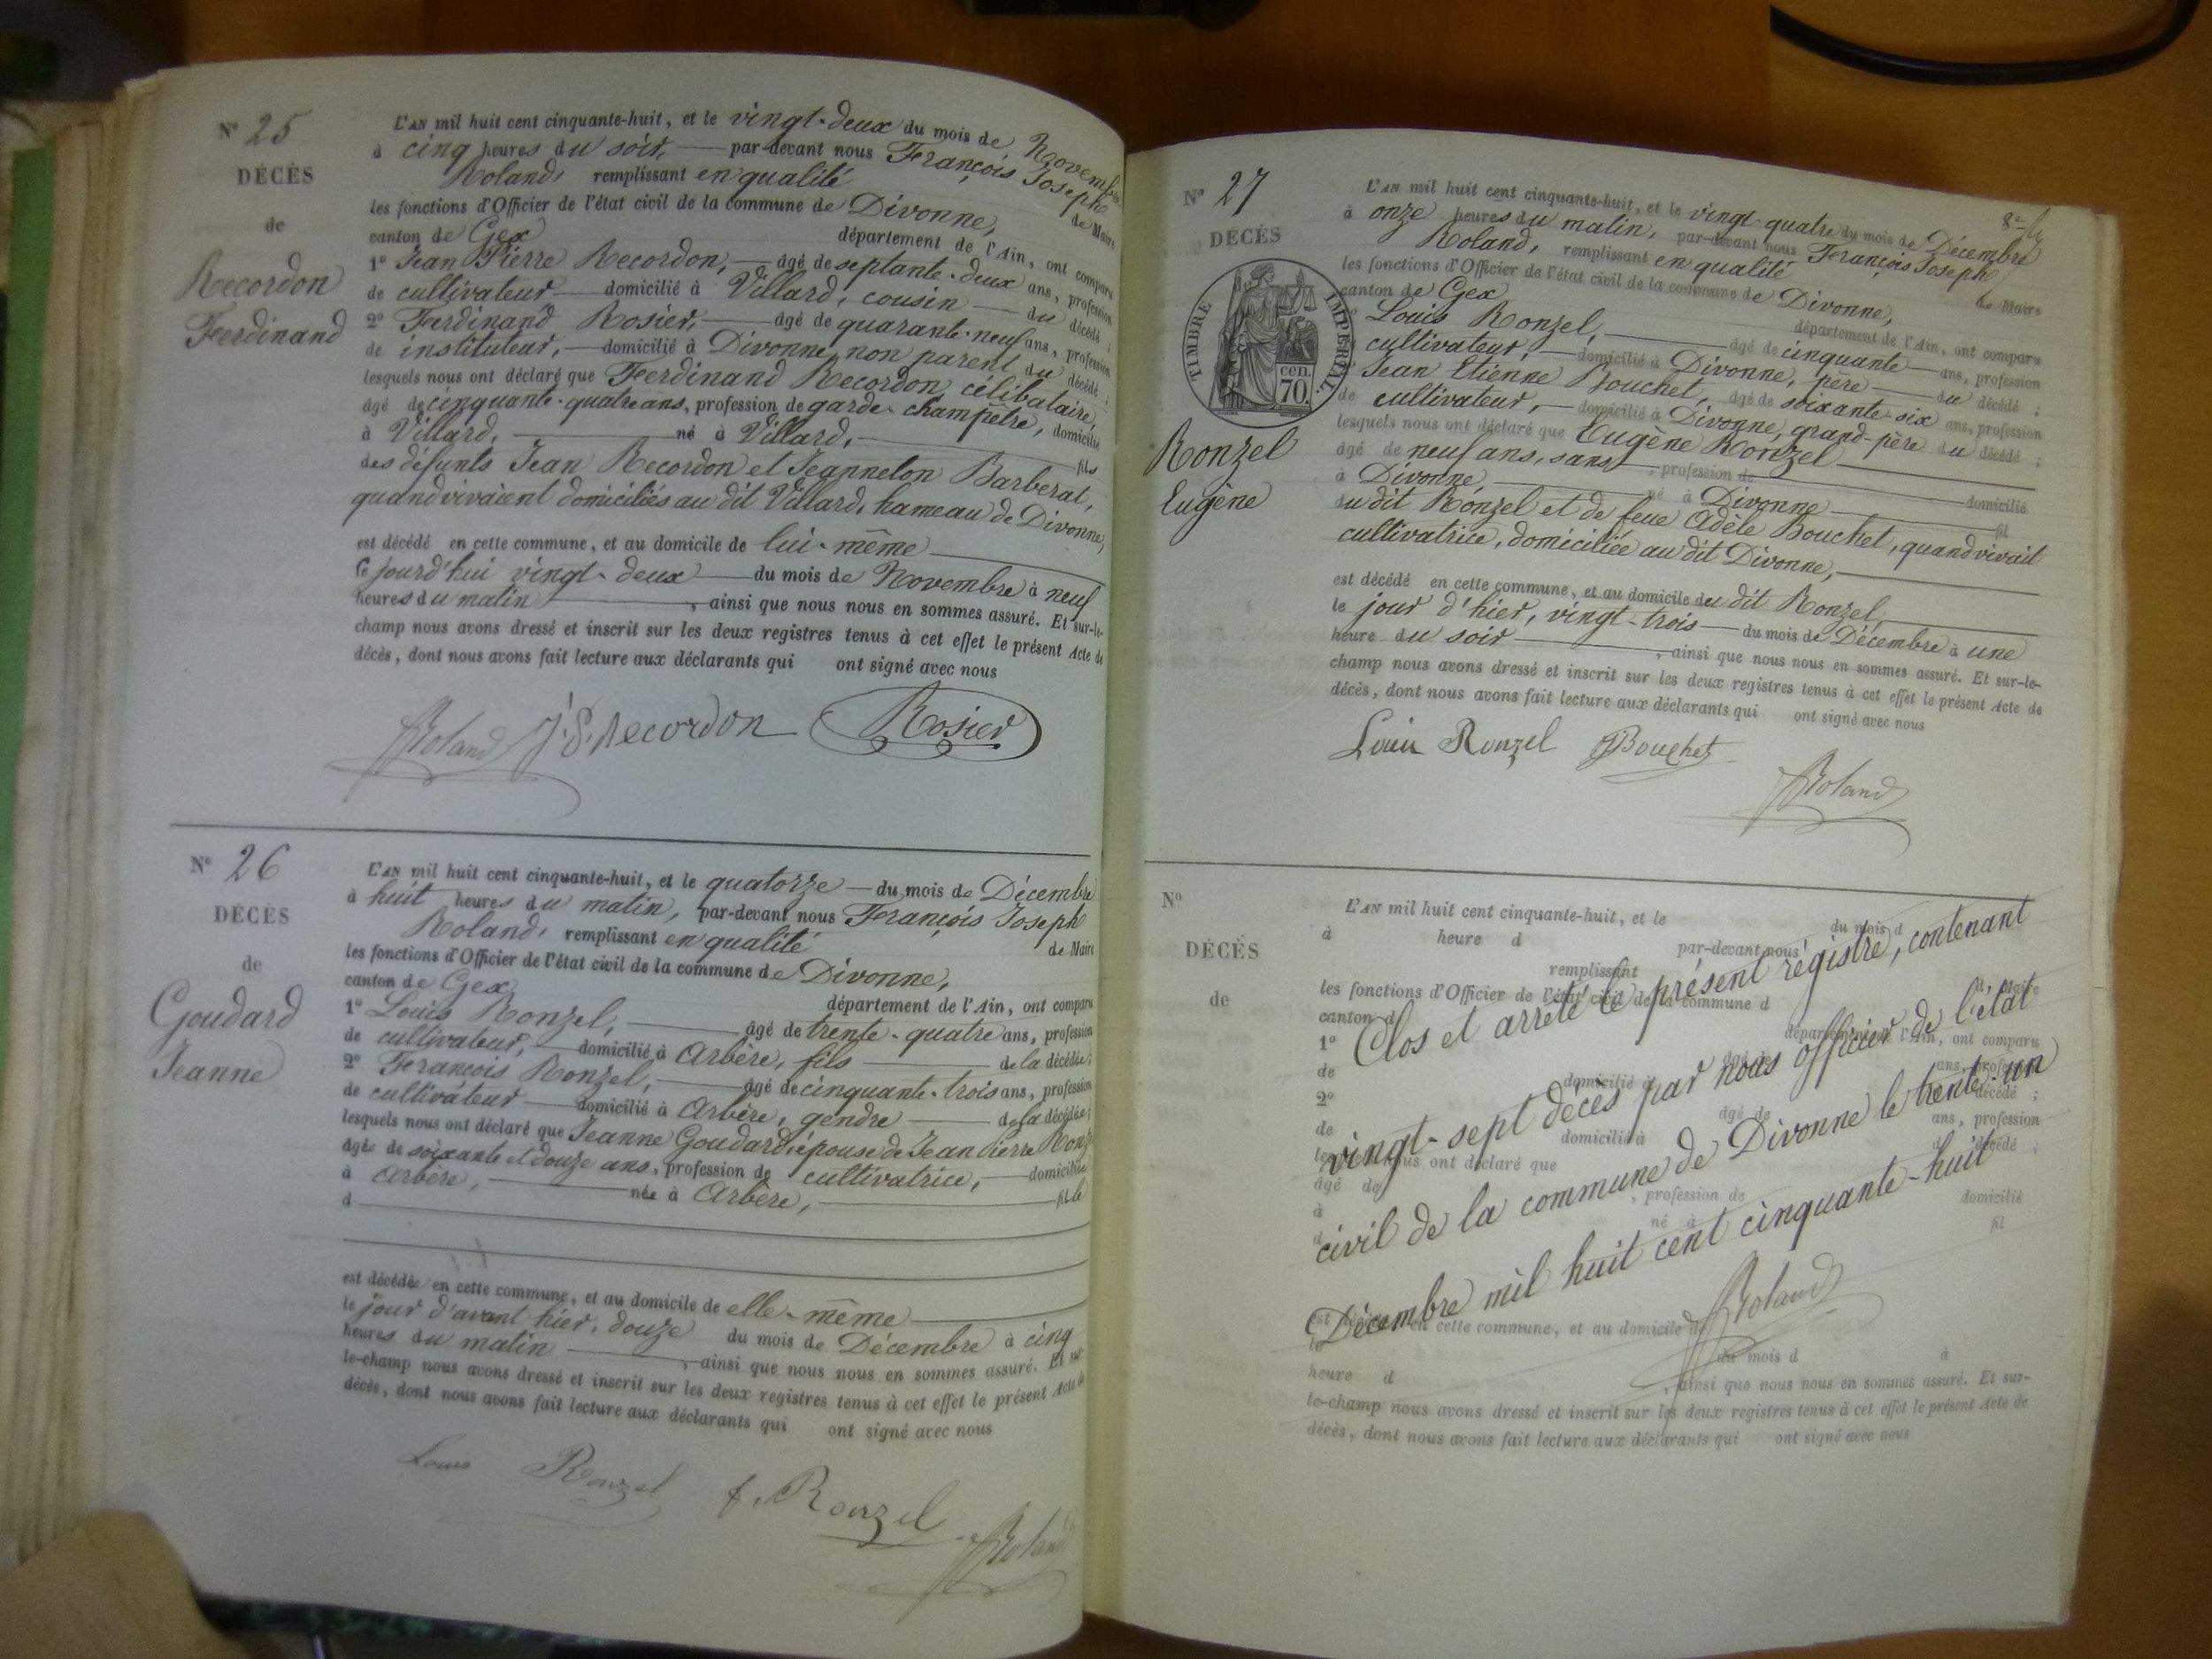 Nº 25
DÉCÈS
de
Recordon
Ferdinand
L'AN mil huit cent cinquante-huit, et le vingt-deux du mois de Novembre
à cinq heures du soir, par-devant nous François Joseph
Roland, remplissant en qualité de Maire
les fonctions d'Officier de l'état civil de la commune de Divonne,
canton de Gex département de l'Ain, ont comparu
1º Jean Pierre Recordon, âgé de septante-deux ans, profession
de cultivateur domicilié à Villard, cousin du décédé ;
2º Ferdinand Rosier, âgé de quarante-neuf ans, profession
de instituteur, domicilié à Divonne, non parent du décédé ;
lesquels nous ont déclaré que Ferdinand Recordon, célibataire,
âgé de cinquante-quatre ans, profession de garde-champêtre, domicilié
à Villard, né à Villard, fils
des défunts Jean Recordon et Jeanneton Barberat,
quand vivaient domiciliés au dit Villard, hameau de Divonne,
est décédé en cette commune, et au domicile de lui-même
Ce jourd'hui vingt-deux du mois de Novembre à neuf
heures du matin, ainsi que nous nous en sommes assuré. Et sur-le-
champ nous avons dressé et inscrit sur les deux registres tenus à cet effet le présent Acte de
décès, dont nous avons fait lecture aux déclarants qui ont signé avec nous
Roland J. P. Recordon Rosier
Nº 26
DÉCÈS
de
Goudard
Jeanne
L'AN mil huit cent cinquante-huit, et le quatorze du mois de Décembre
à huit heures du matin, par-devant nous François Joseph
Roland, remplissant en qualité de Maire
les fonctions d'Officier de l'état civil de la commune de Divonne,
canton de Gex département de l'Ain, ont comparu
1º Louis Ronzel, âgé de trente-quatre ans, profession
de cultivateur, domicilié à Arbère, fils de la décédée ;
2º François Ronzel, âgé de cinquante-trois ans, profession
de cultivateur domicilié à Arbère, gendre de la décédée ;
lesquels nous ont déclaré que Jeanne Goudard épouse de Jean Pierre Ronzel
âgée de soixante et douze ans, profession de cultivatrice, domiciliée
à Arbère, née à Arbère, fille
d
est décédée en cette commune, et au domicile de elle-même
le jour d'avant hier, douze du mois de Décembre à cinq
heures du matin, ainsi que nous nous en sommes assuré. Et sur-
le-champ nous avons dressé et inscrit sur les deux registres tenus à cet effet le présent Acte de
décès, dont nous avons fait lecture aux déclarants qui ont signé avec nous
Louis Ronzel f. Ronzel
Roland
Nº 27
DÉCÈS
TIMBRE IMPERIAL
70 cen.
Ronzel
Eugène
L'AN mil huit cent cinquante-huit, et le vingt-quatre du mois de Décembre
à onze heures du matin, par-devant nous François Joseph
Roland, remplissant en qualité de Maire
les fonctions d'Officier de l'état civil de la commune de Divonne,
canton de Gex département de l'Ain, ont comparu
Louis Ronzel, âgé de cinquante ans, profession
cultivateur, domicilié à Divonne, père du décédé ;
Jean Etienne Bouchet, âgé de soixante-six ans, profession
de cultivateur, domicilié à Divonne, grand-père du décédé ;
lesquels nous ont déclaré que Eugène Ronzel
âgé de neuf ans, sans, profession de domicilié
à Divonne, né à Divonne fil
du dit Ronzel et de feue Adèle Bouchet, quand vivait
cultivatrice, domiciliée au dit Divonne,
est décédé en cette commune, et au domicile du dit Ronzel,
le jour d'hier, vingt-trois du mois de Décembre à une
heure du soir, ainsi que nous nous en sommes assuré. Et sur-le-
champ nous avons dressé et inscrit sur les deux registres tenus à cet effet le présent Acte de
décès, dont nous avons fait lecture aux déclarants qui ont signé avec nous
Louis Ronzel Bouchet
Roland
Nº
DÉCÈS
de
L'AN mil huit cent cinquante-huit, et le du mois d
à heure d par-devant nous
remplissant d Maire
les fonctions d'Officier de l'état civil de la commune d
canton d département de l'Ain, ont comparu
1º âgé de ans, profession
de domicilié à d décédé ;
2º âgé de ans, profession
de domicilié à d décédé ;
lesquels nous ont déclaré que
âgé de, profession de domicilié
à né à fil
d
Clos et arrêté le présent régistre, contenant
vingt-sept décès par nous officier de l'état
civil de la commune de Divonne le trente-un
Décembre mil huit cent cinquante-huit
Roland
est décédé en cette commune, et au domicile de
le du mois d à
heure d, ainsi que nous nous en sommes assuré. Et sur-
le-champ nous avons dressé et inscrit sur les deux registres tenus à cet effet le présent Acte de
décès, dont nous avons fait lecture aux déclarants qui ont signé avec nous